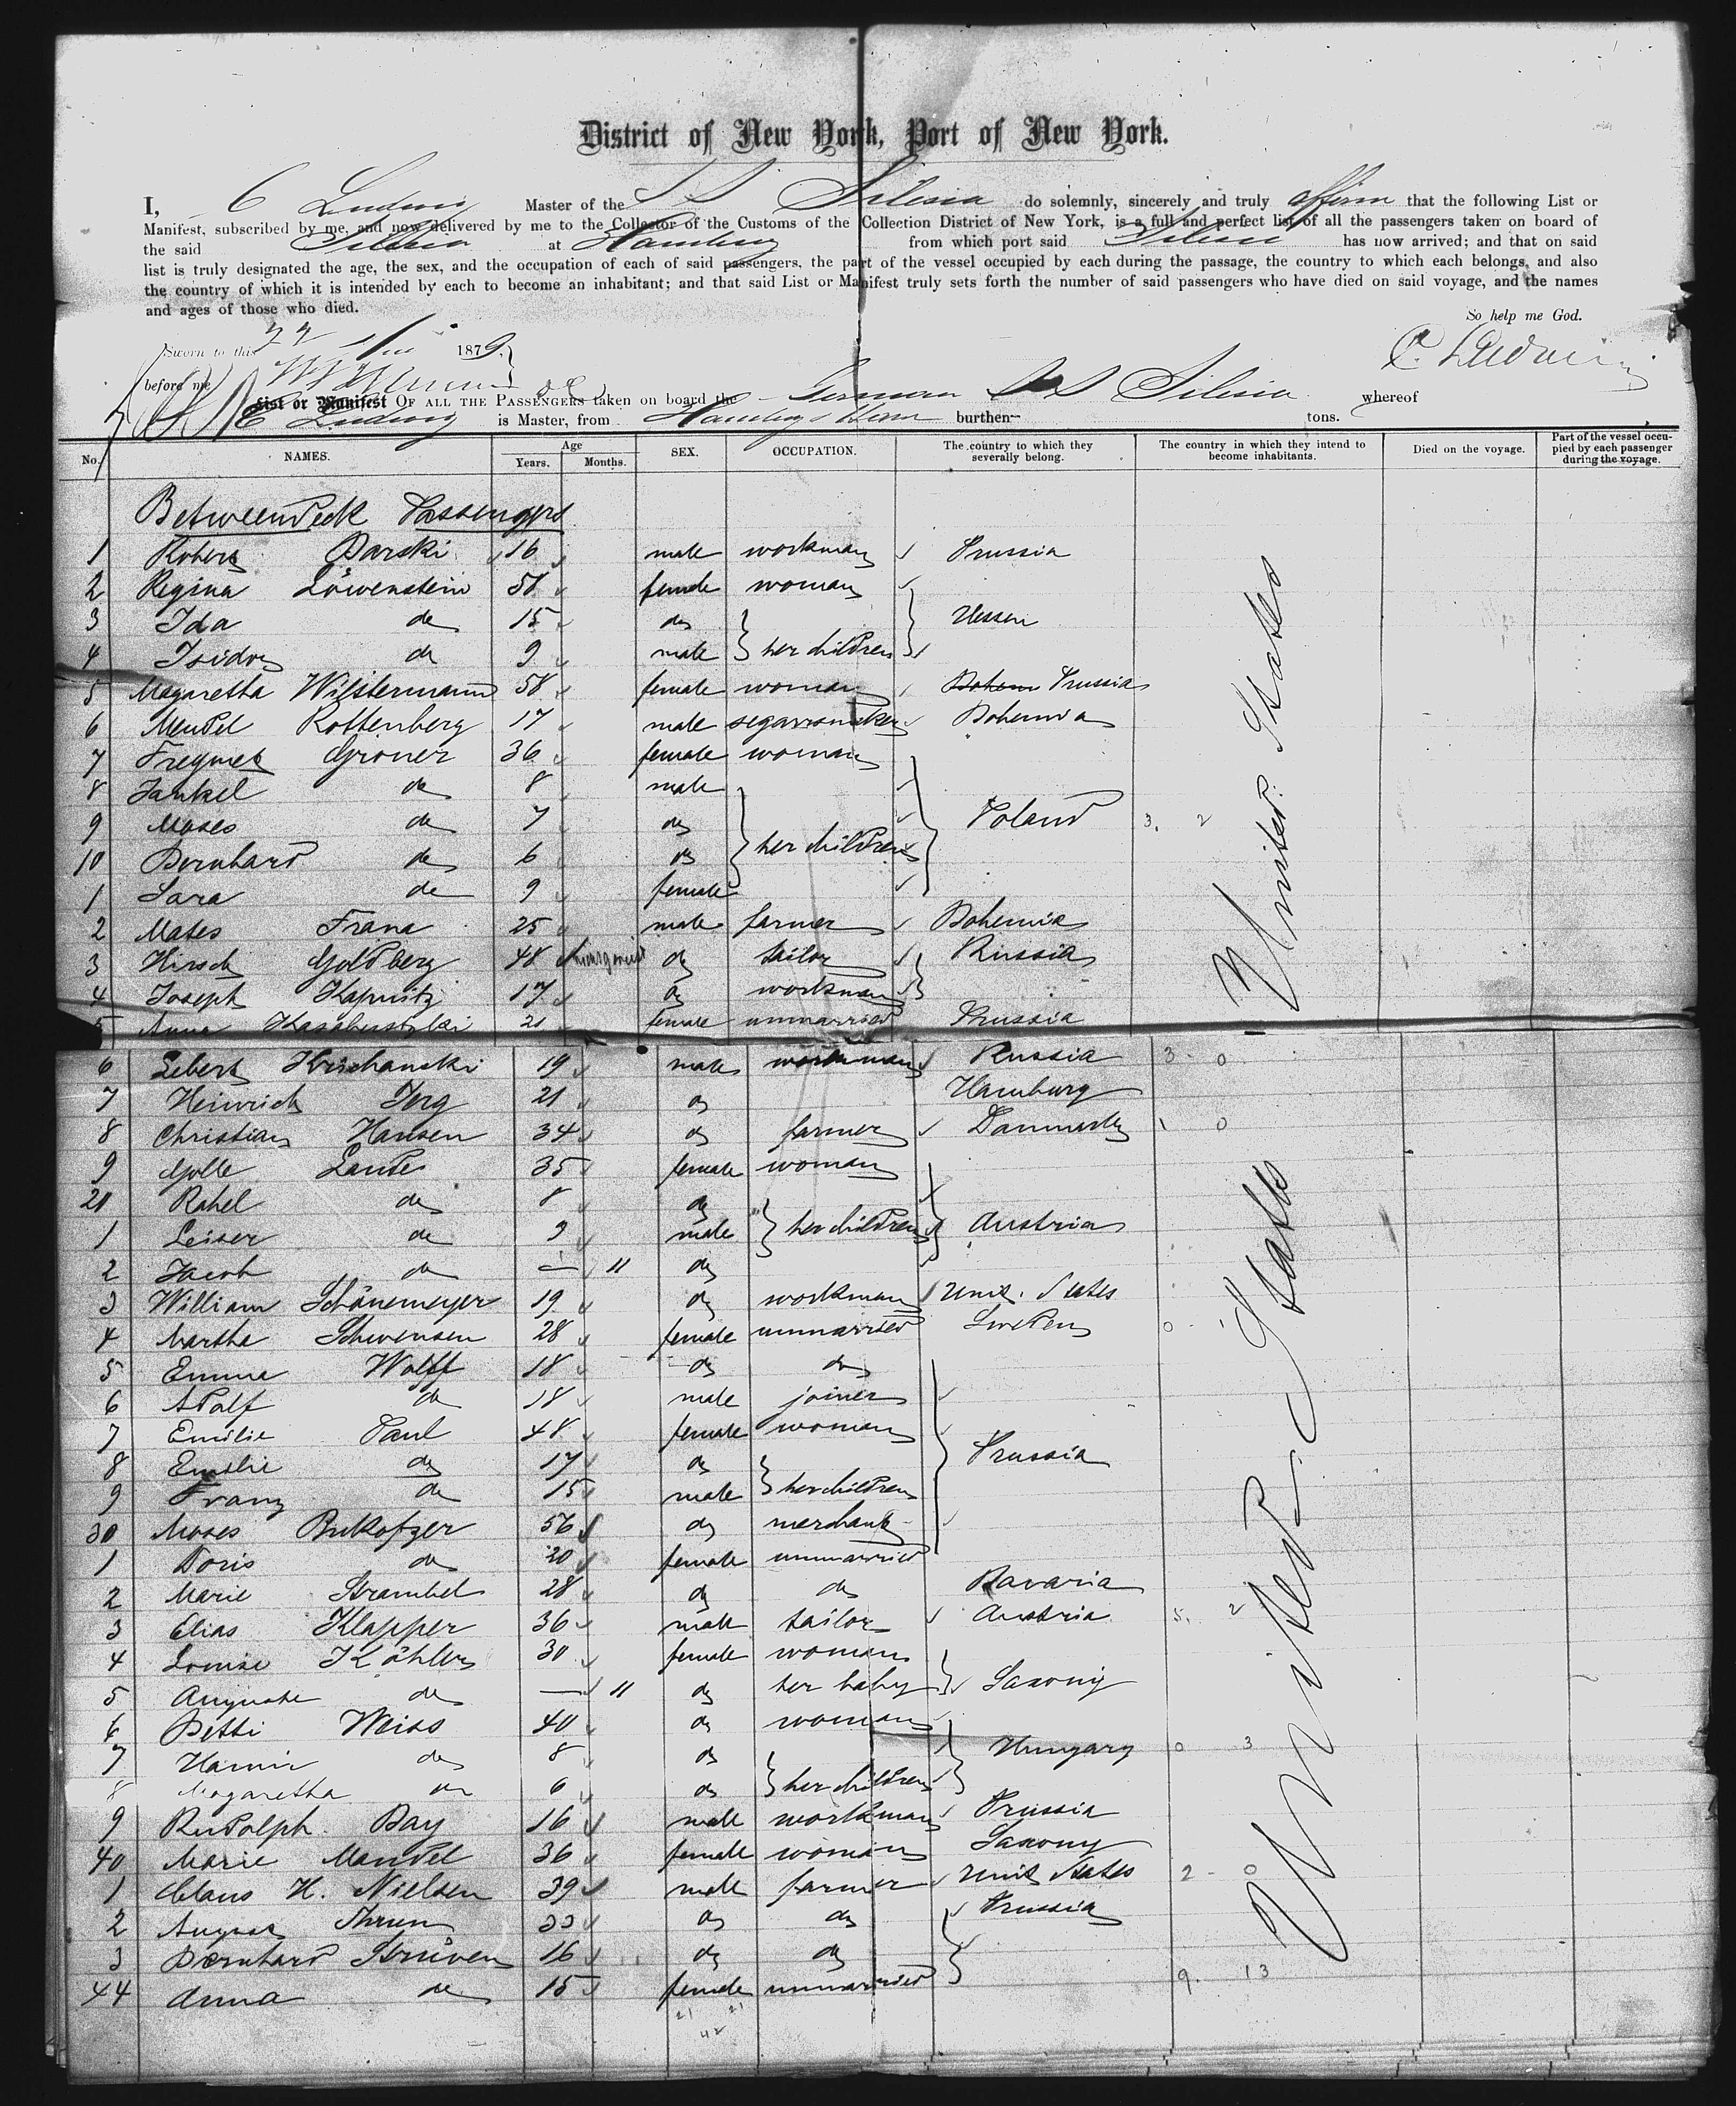 District of New York, Port of New York.
I, C Ludwig Master of the SS Silesia do solemnly, sincerely and truly affirm that the following List or
Manifest, subscribed by me, and now delivered by me to the Collector of the Customs of the Collection District of New York, is a full and perfect list of all the passengers taken on board of
the said Silesia at Hamburg from which port said Silesia has now arrived; and that on said
list is truly designated the age, the sex, and the occupation of each of said passengers, the part of the vessel occupied by each during the passage, the country to which each belongs, and also
the country of which it is intended by each to become an inhabitant; and that said List or Manifest truly sets forth the number of said passengers who have died on said voyage, and the names
and ages of those who died.
So help me God.
Sworn to this 22 1879,
C. Ludwig
before me
List or Manifest OF ALL THE PASSENGERS taken on board the German SS Silesia whereof
C Ludwig is Master, from Hamburg & Havre burthen tons.
No. NAMES. Age Years. Months. SEX. OCCUPATION. The country to which they severally belong. The country in which they intend to become inhabitants. Died on the voyage. Part of the vessel occupied by each passenger during the voyage.
Betweendeck Passengers
1 Robert Darski 16 male workman Prussia
2 Regina Löwenstein 58 female woman
3 Ida do 15 do Hessen
4 Isidor do 9 male her children
5 Magaretha Wilstermann 58 female woman Bohem Prussia
6 Mendel Rottenberg 17 male segarrsmaker Bohemia
7 Groner 36 female woman
8 Jankel do 8 male
9 Moses do 7 do Poland 3. 2
10 Bernhard do 6 do her children
1 Sara do 9 female
2 Mates Frana 25 male farmer Bohemia
3 Hirsch Goldberg 48 do tailor Russia
4 Joseph 17 do workman
5 Anna 21 female unmarried Prussia
6 Lebert Krischanski 19 male workman Russia 3 - 0
7 Heinrich Jerg 21 do Hamburg
8 Christian Hansen 34 do farmer Danmark 1 0
9 Golle Lande 35 female woman
20 Rahel do 8 do
1 Leiser do 9 male her children Austria
2 Jacob do — 11 do
3 William Schönemeyer 19 do workman Unit. States
4 Martha Schwensen 28 female unmarried Sweden 0 - 1
5 Emma Wolff 18 do do
6 Adolf do 18 male joiner
7 Emilie Paul 48 female woman
8 Emilie do 17 do Prussia
9 Franz do 15 male her children
30 Moses Bukofzer 56 do merchant
1 Doris do 20 female unmarried
2 Marie Strambel 28 do do Bavaria
3 Elias Klapper 36 male tailor Austria 5. 2
4 Louise Köhler 30 female woman
5 Auguste do — 11 do her baby Saxony
6 Betti Weiss 40 do woman
7 Hanni do 8 do Hungary 0 3
8 Magaretha do 6 do her children
9 Rudolph Bay 16 male workman Prussia
40 Marie Mandel 36 female woman Saxony
1 Claus H. Nielsen 39 male farmer Unit States 2 - 0
2 August Thrun 33 do do Prussia
3 Bernhard Strüven 16 do do
44 Anna do 15 female unmarried 9. 13
21 21
42
United States
United States